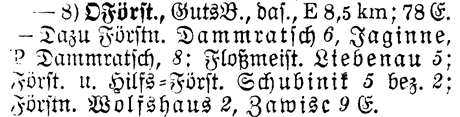 — 8) OFörst., GutsB., das., E 8,5 km; 78 E.
— Dazu Förstn. Dammratsch 6, Jaginne,
P Dammratsch, 8; Floßmeist. Liebenau 5;
Först. u. Hilfs=Först. Schubinik 5 bez. 2;
Förstn. Wolfshaus 2, Zawisc 9 E.